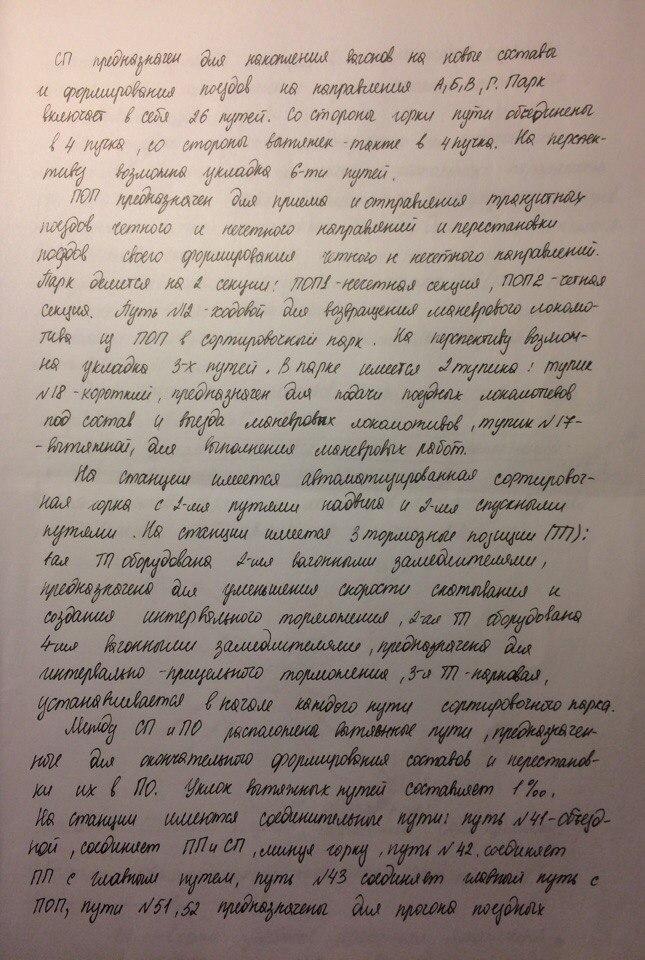 СП предназначен для накопления вагонов на новые составы
и формирования поездов на направления А, Б, В, Г. Парк
включает в себя 26 путей. Со стороны горки пути объединены
в 4 пучка, со стороны вытяжек - также в 4 пучка. На перспек-
тиву возможна укладка 6-ти путей.
ПОП предназначен для приема и отправления транзитных
поездов четного и нечетного направлений и перестановки
поездов своего формирования четного и нечетного направлений.
Парк делится на 2 секции: ПОП1 - нечетная секция, ПОП2 - четная
секция. Путь №12 - ходовой для возвращения маневрового локомо-
тива из ПОП в сортировочный парк. На перспективу возмож-
на укладка 3-х путей. В парке имеется 2 тупика: тупик
№18 - короткий, предназначен для подачи поездных локомотивов
под состав и выезда маневровых локомотивов, тупик №17-
- вытяжной, для выполнения маневровых работ.
На станции имеется автоматизированная сортировоч-
ная горка с 2-мя путями надвига и 2-мя спускными
путями. На станции имеется 3 тормозные позиции (ТП):
1ая ТП оборудована 2-мя вагонными замедлителями,
предназначена для уменьшения скорости скатывания и
создания интервального торможения, 2-ая ТП оборудована
4-мя вагонными замедлителями, предназначена для
интервально - прицельного торможения, 3-я ТП - парковая,
устанавливается в начале каждого пути сортировочного парка.
Между СП и ПО расположена вытяжные пути, предназначен-
ные для окончательного формирования составов и перестанов-
ки их в ПО. Уклон вытяжных путей составляет 1‰.
На станции имеются соединительные пути: путь №41 - объезд-
ной, соединяет ПП и СП, минуя горку, путь №42 соединяет
ПП с главным путем, путь №43 соединяет главный путь с
ПОП, пути №51, 52 предназначены для прогона поездных